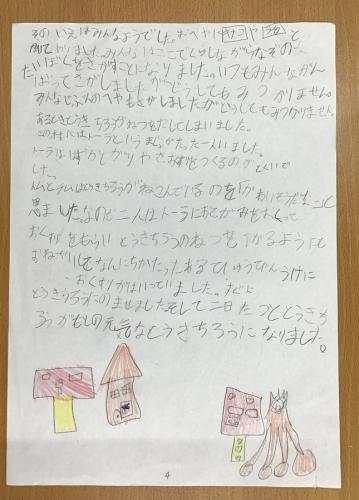 そのいえはみんなようでした。おへやに
かいてありました。みんなはここでくらしながらなその
たいぼくをさがすことになりました。いつもみんながん
ばってさがしましたがどうしてもみつかりません。
みんなじぶんのへやもさがしましたがどうしてもみつかりません
あるときとうきちろうがねつをだしてしまいました。
この村にはトーラというまじょがたった一人いました。
トーラははずかしがりやでおくすりをつくるのがとくいで
した。
とうきちろうがねこんでいるのを「かわいそうだなあ」と
思ました。なので二人はトーラにおてがみをおくって
おくすりをもらいとうきちろうのねつを下がるように
おねがいしなんにちかたったあるひゆうびんうけに
おくすりがはいっていました。すぐに
とうきちろうにのませましたそして二日たつととうきち
ろうがもとの元気なとうきちろうになりました。
4